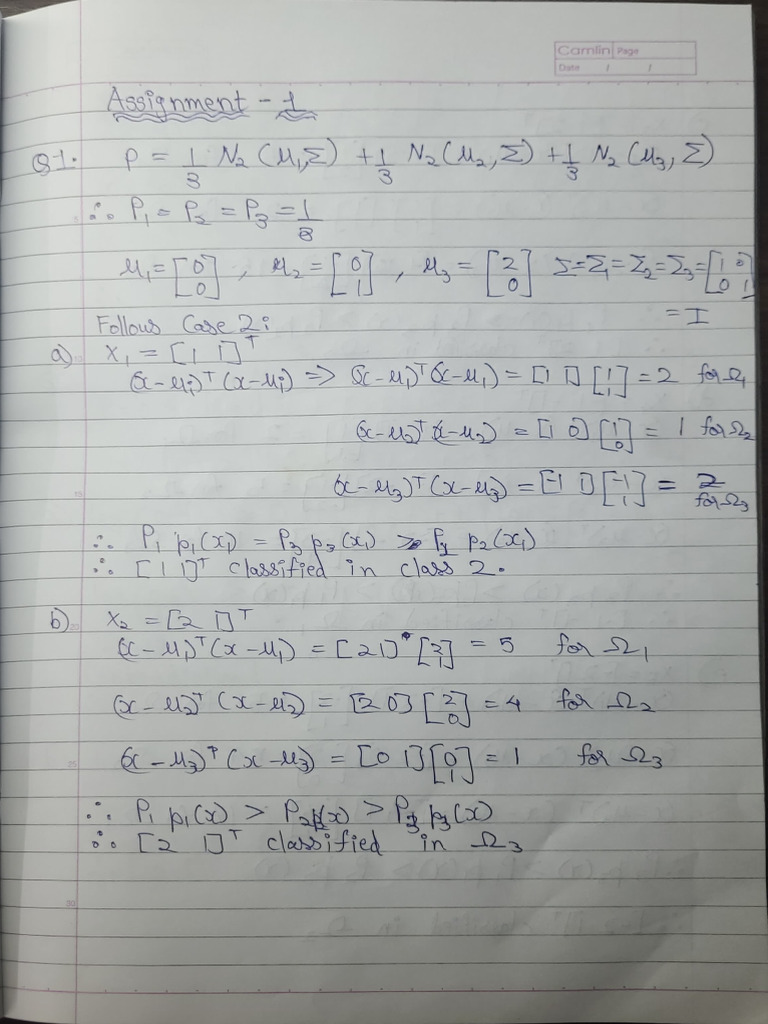 Camlin Page
Date / /
Assignment - 1
Q1. P = 1/3 N₂ (μ₁,Σ) + 1/3 N₂(μ₂, Σ) + 1/3 N₂ (μ₃, Σ)
∴ P₁ = P₂ = P₃ = 1/3
μ₁ = [0 0] , μ₂ = [0 1] , μ₃ = [2 0] Σ=Σ₁=Σ₂=Σ₃=[1 0 0 1]
= I
Follows Case 2:
a) x₁ = [1 1]ᵀ
(x-μᵢ)ᵀ(x-μᵢ) => (x-μ₁)ᵀ(x-μ₁) = [1 1] [1 1] = 2 for Ω₁
(x-μ₂)ᵀ(x-μ₂) = [1 0] [1 0] = 1 for Ω₂
(x-μ₃)ᵀ(x-μ₃) = [-1 1] [-1 1] = 2 for Ω₃
∴ P₁ p₁(x₁) = P₃ p₃(x₁) > p₂(x₁)
∴ [1 1]ᵀ classified in class 2.
b) x₂ = [2 1]ᵀ
(x-μ₁)ᵀ(x-μ₁) = [2 1] [2 1] = 5 for Ω₁
(x-μ₂)ᵀ (x-μ₂) = [2 0] [2 0] = 4 for Ω₂
(x-μ₃)ᵀ (x-μ₃) = [0 1] [0 1] = 1 for Ω₃
∴ P₁ p₁(x) > P₂p₂(x) > P₃ p₃(x)
∴ [2 1]ᵀ classified in Ω₃